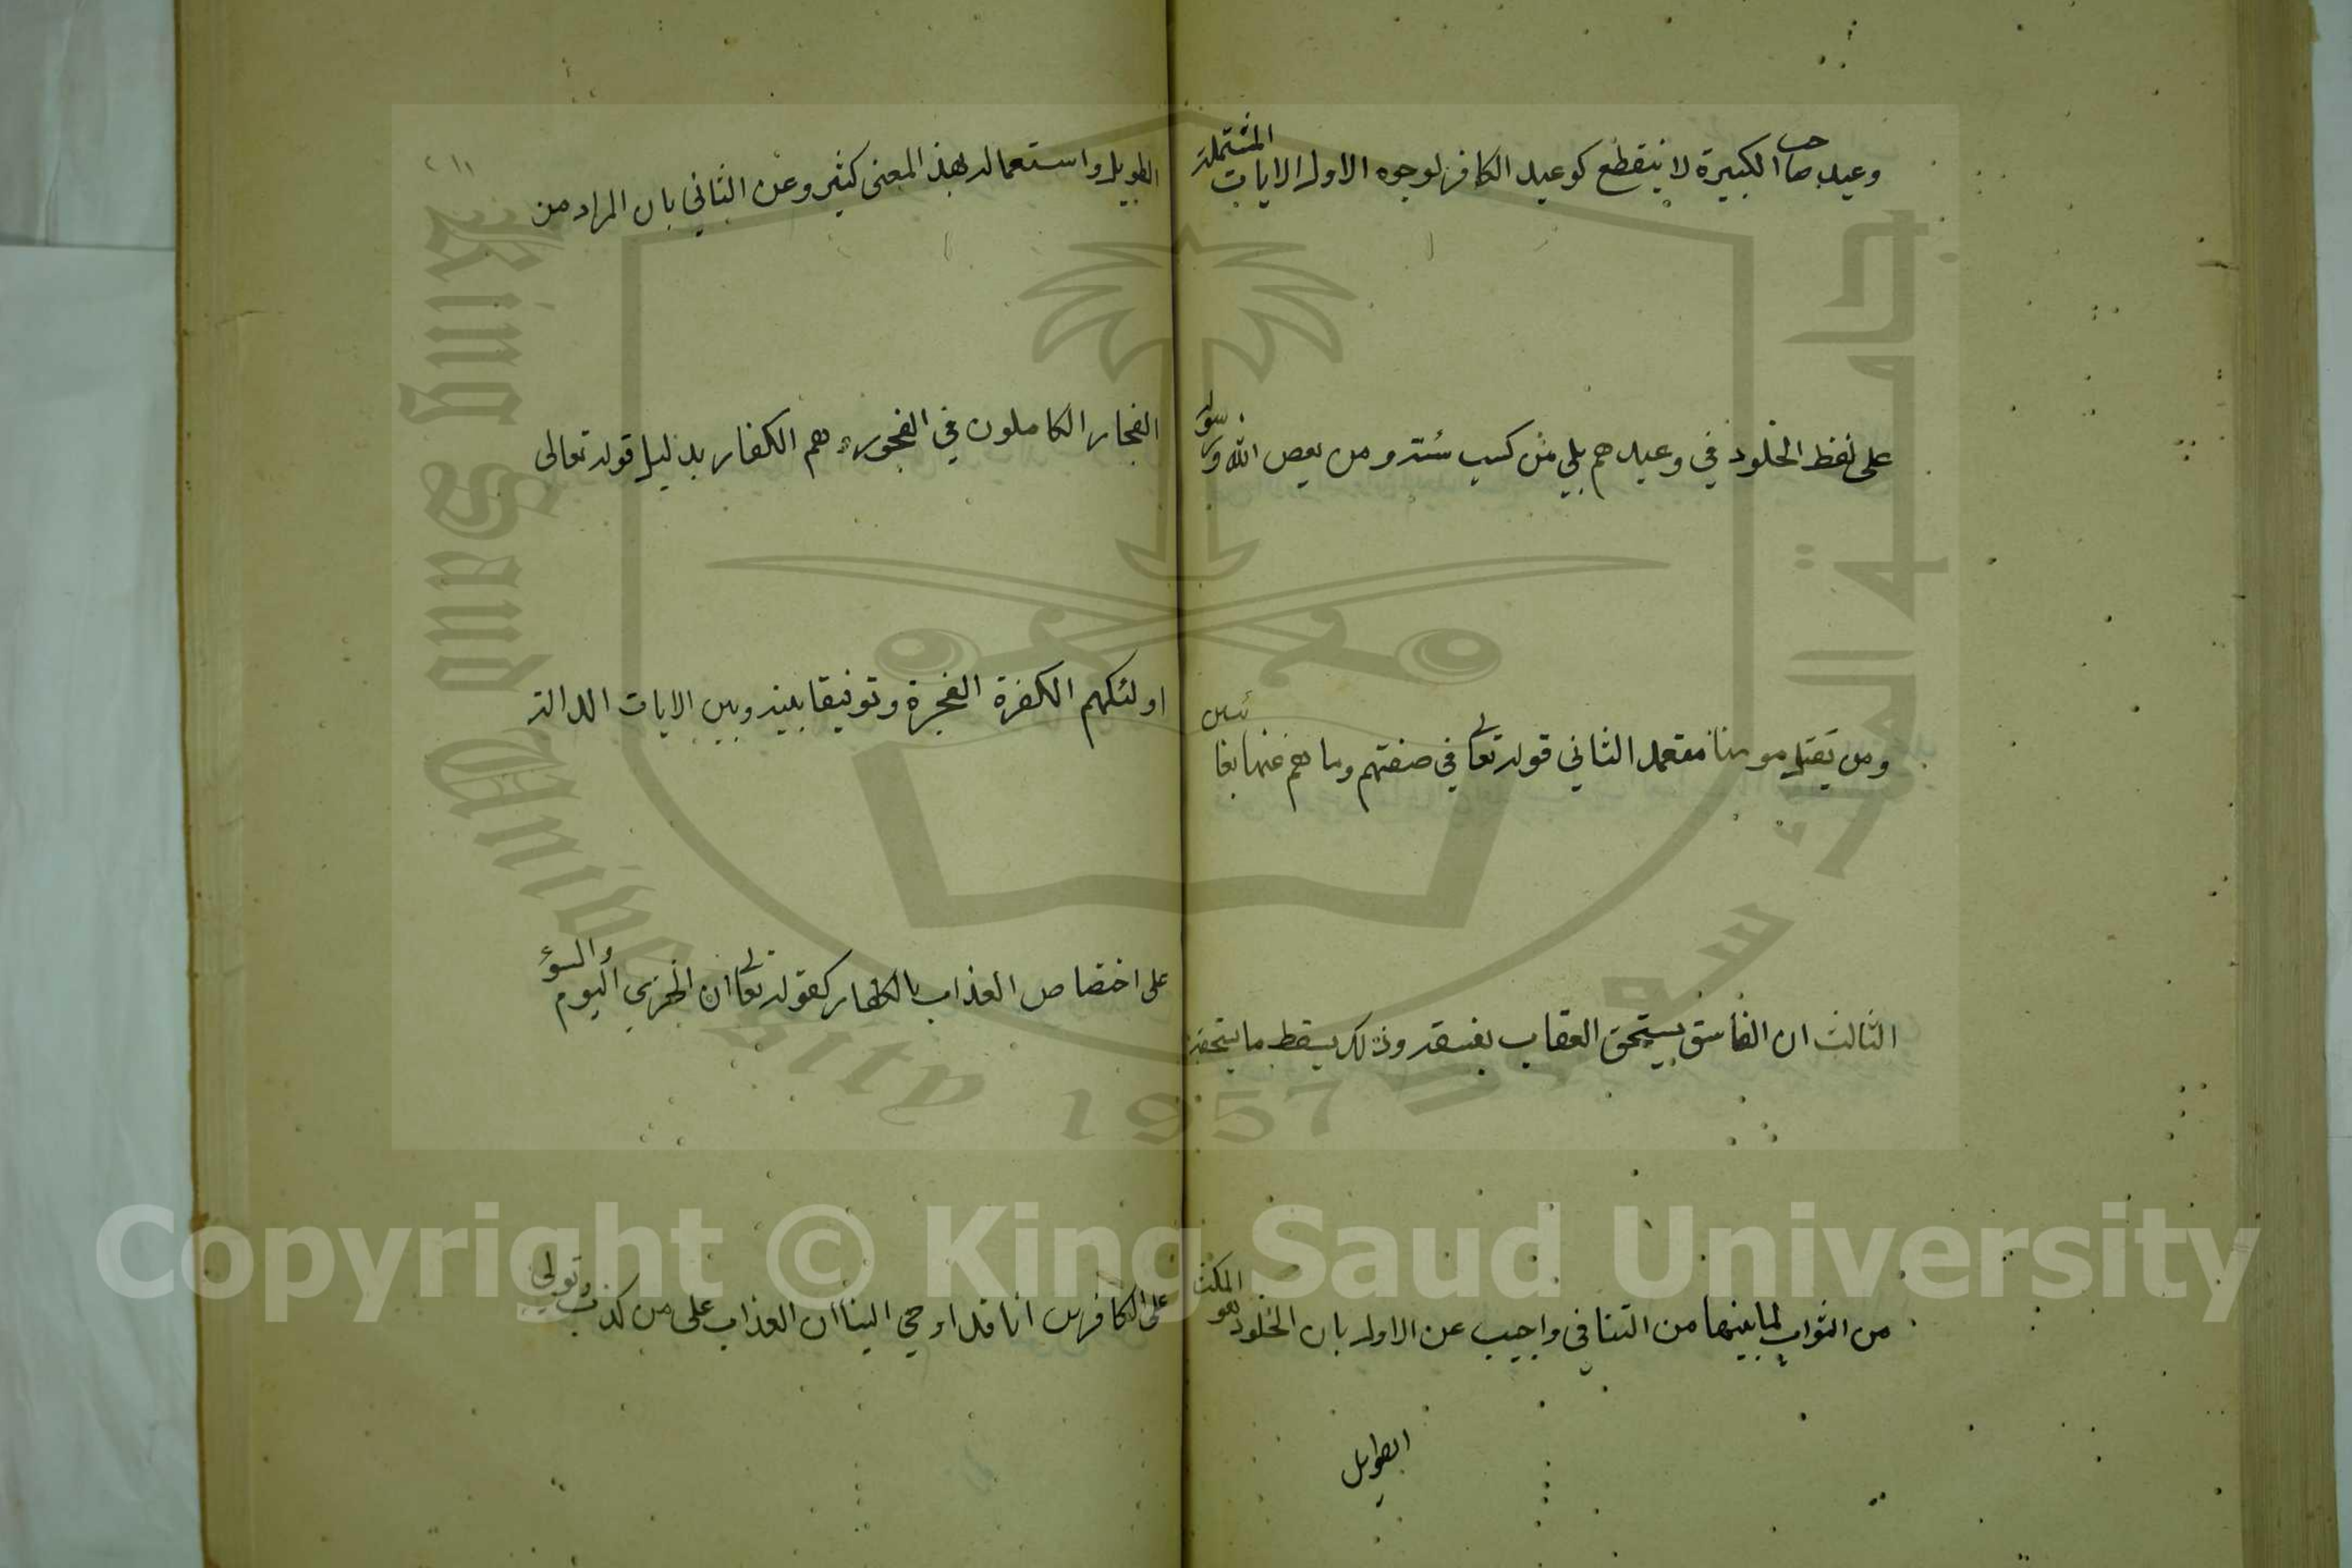 وعيد صاحب الكبيرة لا ينقطع كوعيد الكافر لوجوه الاول الايات المشتملة
على لفظ الخلود في وعيدهم بلى من كسب سئة ومن يعص الله ورسوله
ومن يقتل مومنا متعمد الثاني قوله تعالى في صفتهم وما هم عنها بغائبين
الثالث ان الفاسق يستحق العقاب بفسقه وذلك يسقط ما يستحقه
من الثواب لما بينهما من التنافى واجيب عن الاول بان الخلود هو المكث
الطويل
٢١١
الطويل واستعماله بهذ المعنى كثير وعن الثاني بان المراد من
الفجار الكاملون في الفجور وهم الكفار بدليل قوله تعالى
اولئك هم الكفرة الفجرة وتوفيقا بينه وبين الايات الدالة
على اختصاص العذاب بالكفار كقوله تعالى ان الخزي اليوم والسوء
على الكافرين انا قد اوحي الينا ان العذاب على من كذب وتولى
King Saud University 1957
جامعة الملك سعود
Copyright © King Saud University